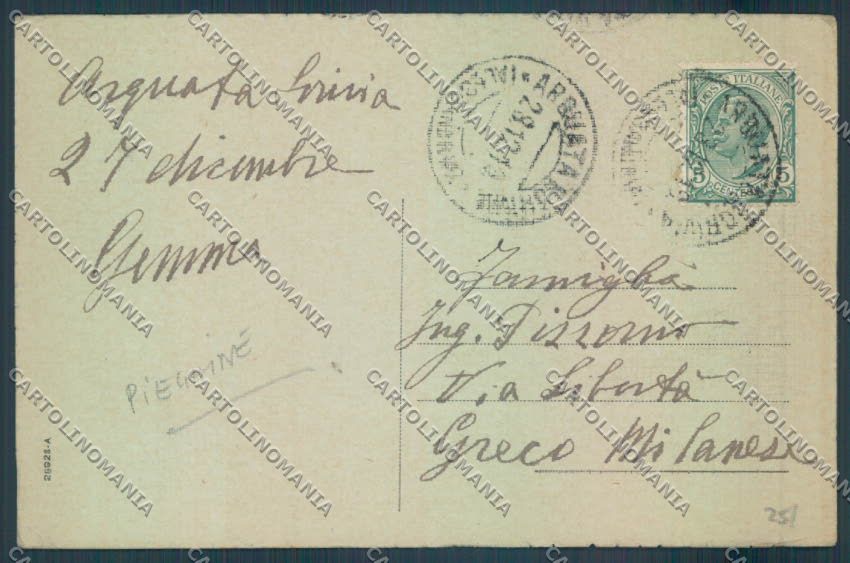 Arquata Scrivia
27 dicembre
Gemma
PIEGHINE
28928-A
ARQUATA
POSTE ITALIANE
5 CENT. 5
Famiglia
Ing. Pizzorno
Via Libertà
Greco Milanese
25/
CARTOLINOMANIA